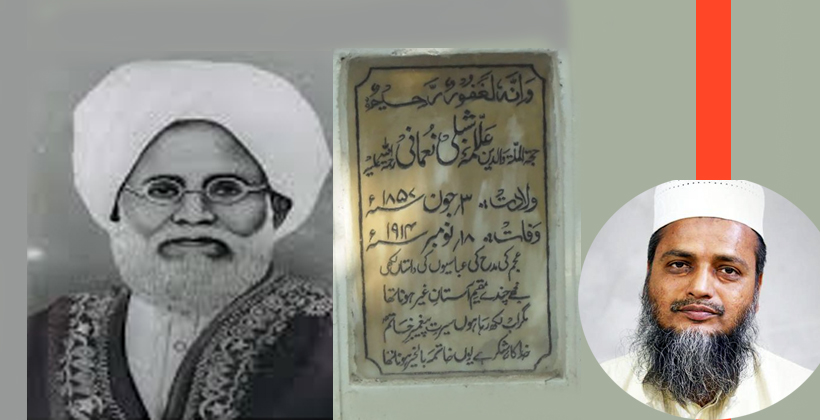 وَاِنَّهٗ لَغَفُوْرٌ رَّحِيْمٌ
حجۃ الملّۃ والدین علّامہ شبلی نعمانی رحمۃ اللہ علیہ
ولادت: ۳؍جون ۱۸۵۷ء
وفات: ۱۸؍نومبر ۱۹۱۴ء
عجم کی مدح کی عباسیوں کی داستاں لکھی
مجھے چندے مقیم آستانِ غیر ہونا تھا
مگر اب لکھ رہا ہوں سیرتِ پیغمبرِ خاتم
خدا کا شکر ہے یوں خاتمہ بالخیر ہونا تھا